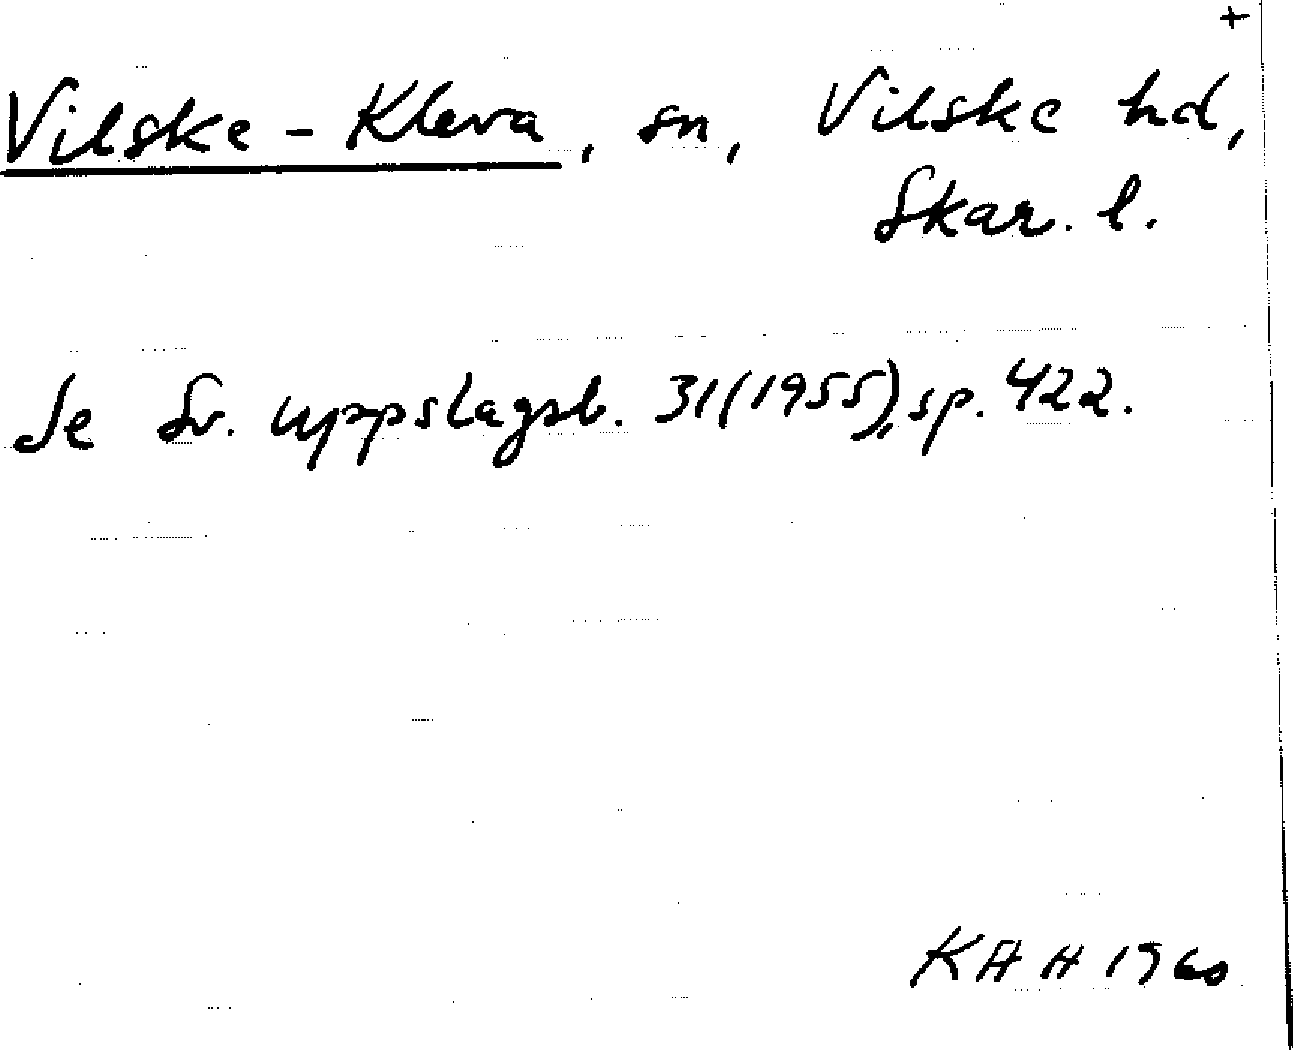 +
Vilske-Kleva, sn, Vilske hd,
Skar. l.
Se Sv. uppslagsb. 31(1955), sp. 422.
KAH 1960